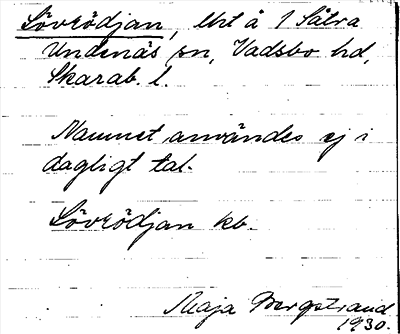 Lövrödjan, lht å 1 Sätra
Undenäs sn, Vadsbo hd,
Skarab. l.
Namnet användes ej i
dagligt tal.
Lövrödjan kb.
Maja Bergstrand
1930.